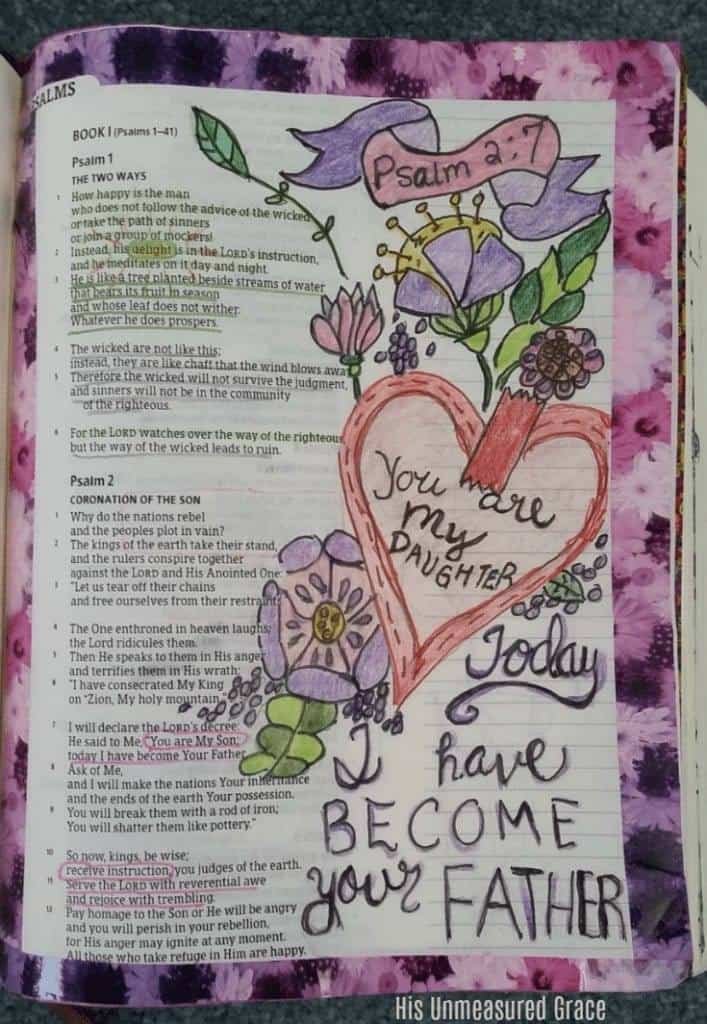 PSALMS
BOOK I (Psalms 1–41)
Psalm 1
THE TWO WAYS
1 How happy is the man
who does not follow the advice of the wicked
or take the path of sinners
or join a group of mockers!
2 Instead, his delight is in the LORD's instruction,
and he meditates on it day and night.
3 He is like a tree planted beside streams of water
that bears its fruit in season
and whose leaf does not wither.
Whatever he does prospers.
4 The wicked are not like this;
instead, they are like chaff that the wind blows away
5 Therefore the wicked will not survive the judgment,
and sinners will not be in the community
of the righteous.
6 For the LORD watches over the way of the righteous
but the way of the wicked leads to ruin.
Psalm 2
CORONATION OF THE SON
1 Why do the nations rebel
and the peoples plot in vain?
2 The kings of the earth take their stand,
and the rulers conspire together
against the LORD and His Anointed One:
3 "Let us tear off their chains
and free ourselves from their restraints
4 The One enthroned in heaven laughs;
the Lord ridicules them.
5 Then He speaks to them in His anger
and terrifies them in His wrath:
6 "I have consecrated My King
on Zion, My holy mountain."
7 I will declare the LORD's decree:
He said to Me, "You are My Son;
today I have become Your Father.
8 Ask of Me,
and I will make the nations Your inheritance
and the ends of the earth Your possession.
9 You will break them with a rod of iron;
You will shatter them like pottery."
10 So now, kings, be wise;
receive instruction, you judges of the earth.
11 Serve the LORD with reverential awe
and rejoice with trembling.
12 Pay homage to the Son or He will be angry
and you will perish in your rebellion,
for His anger may ignite at any moment.
All those who take refuge in Him are happy.
Psalm 2:7
You are
my
DAUGHTER
Today
I have
BECOME
your FATHER
His Unmeasured Grace